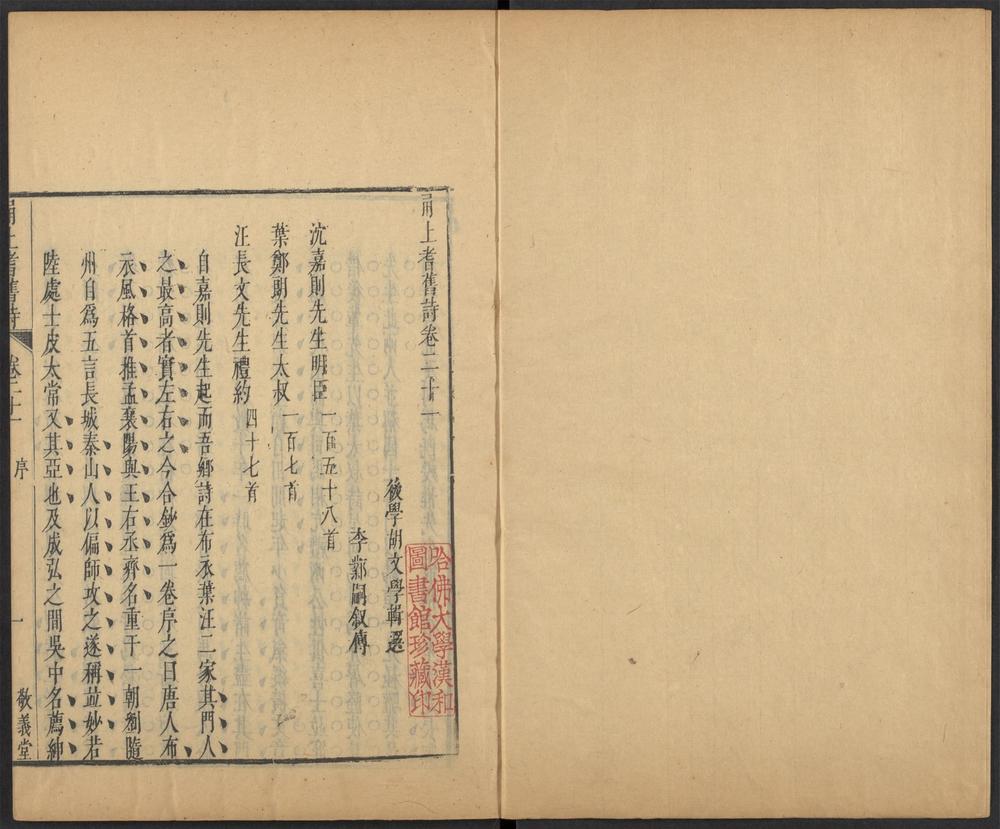 甬上耆舊詩卷二十一
後學胡文學輯選
李鄴嗣敘傳
沈嘉則先生明臣一百五十八首
葉鄭朗先生太叔一百七首
汪長文先生禮約四十七首
自嘉則先生起而吾鄉詩在布衣葉汪二家其門人
之最高者實左右之今合鈔為一卷序之曰唐人布
衣風格首推孟襄陽與王右丞齊名重于一朝劉隨
州自爲五言長城秦山人以偏師攻之遂稱並妙若
陸處士皮太常又其亞也及成弘之間吳中名薦紳
甬上耆舊詩 卷二十一 序 一 敬義堂
哈佛大學漢和
圖書館珍藏印